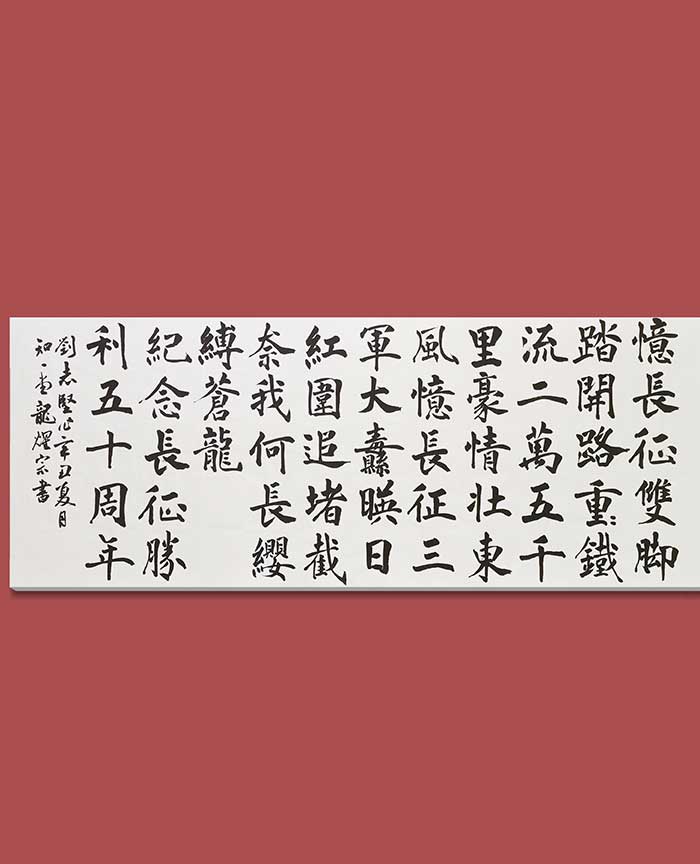 憶長征雙脚
踏開路重:鐵
流二萬五千
里豪情壯東
風憶長征三
軍大纛暎日
紅圍追堵截
奈我何長纓
縛蒼龍
紀念長征勝
利五十周年
劉志堅作辛丑夏月
知一 龍燿宗書